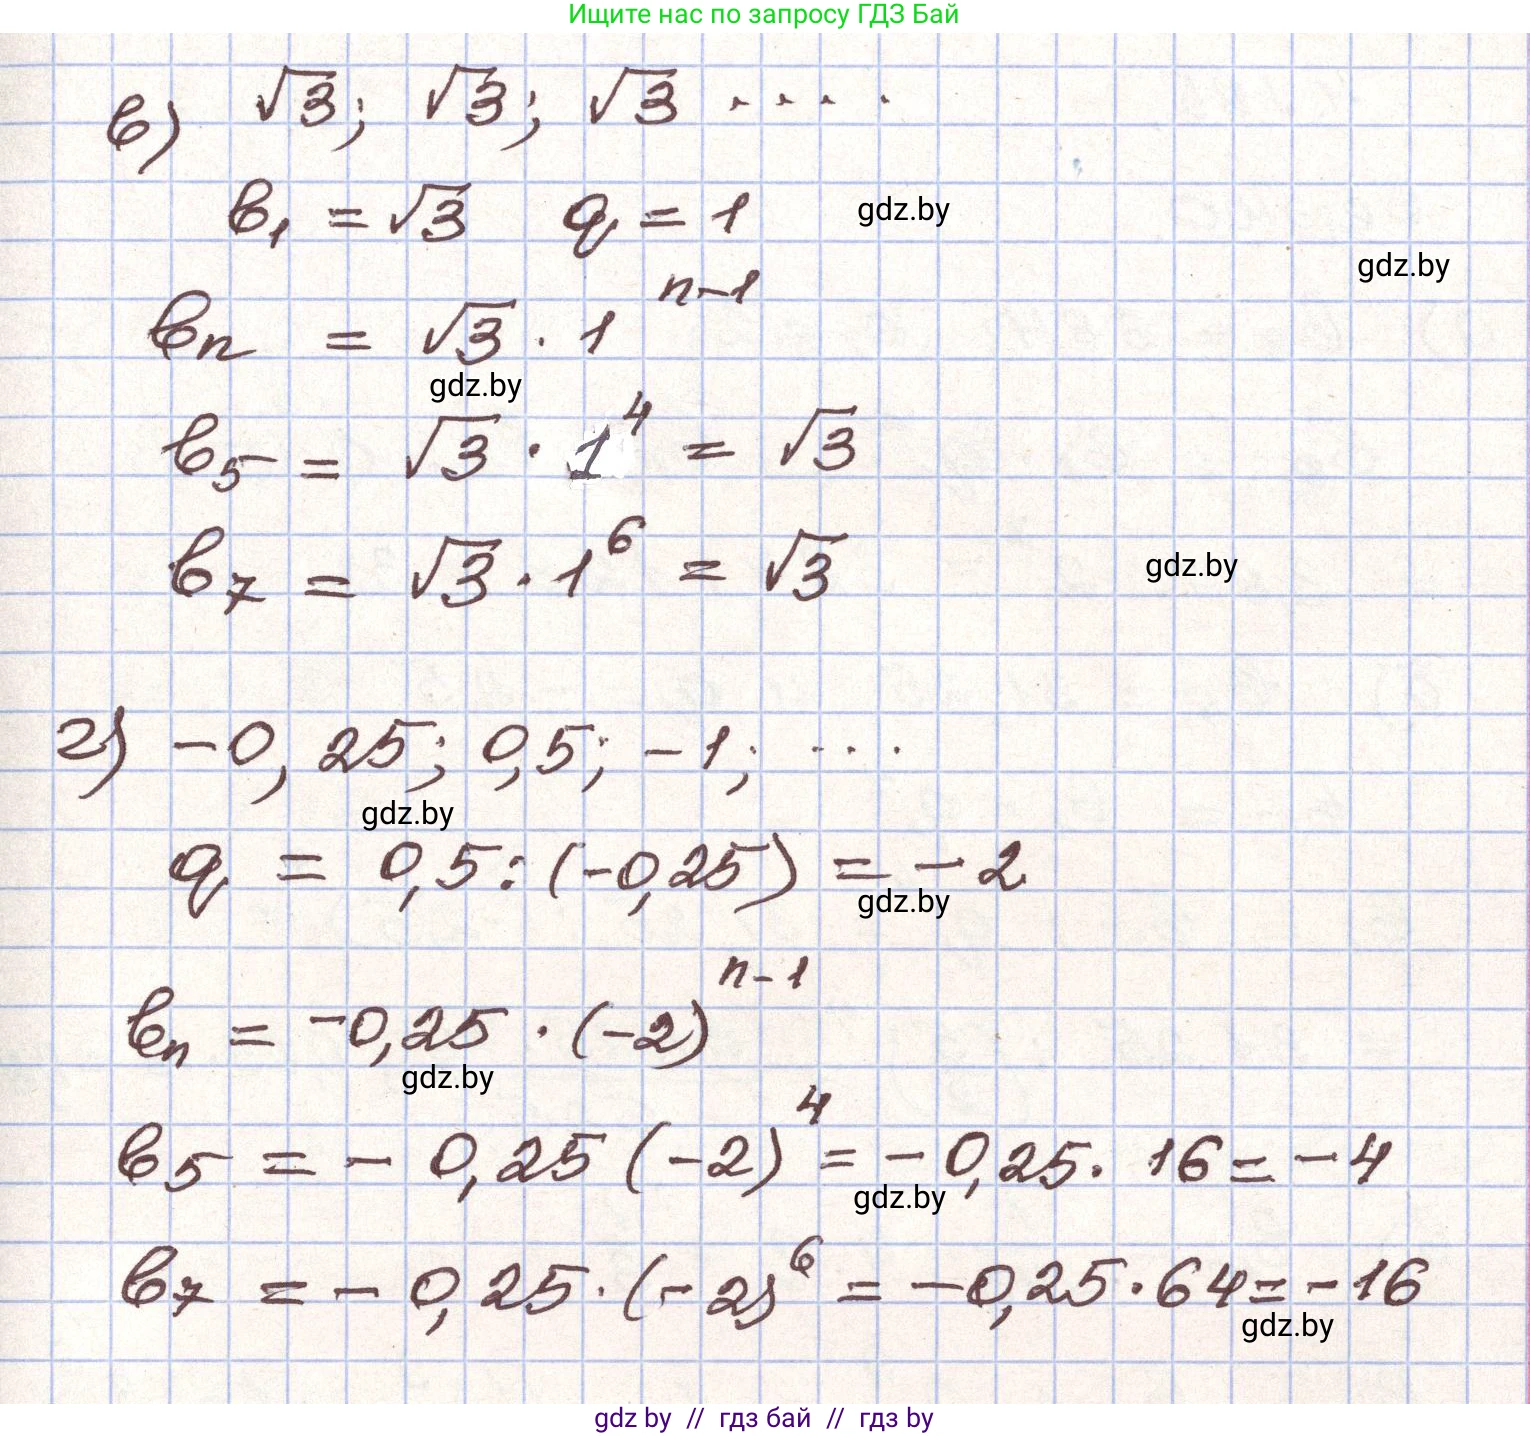 Ищите нас по запросу ГДЗ Бай
в) √3; √3; √3 ....
в₁ = √3 q = 1
gdz.by
gdz.by
вₙ = √3 · 1ⁿ⁻¹
gdz.by
в₅ = √3 · 1⁴ = √3
в₇ = √3 · 1⁶ = √3
gdz.by
г) -0,25; 0,5; -1; ...
gdz.by
q = 0,5 : (-0,25) = -2
gdz.by
вₙ = -0,25 · (-2)ⁿ⁻¹
gdz.by
в₅ = -0,25 (-2)⁴ = -0,25 · 16 = -4
gdz.by
в₇ = -0,25 · (-2)⁶ = -0,25 · 64 = -16
gdz.by
gdz by // гдз бай // гдз by